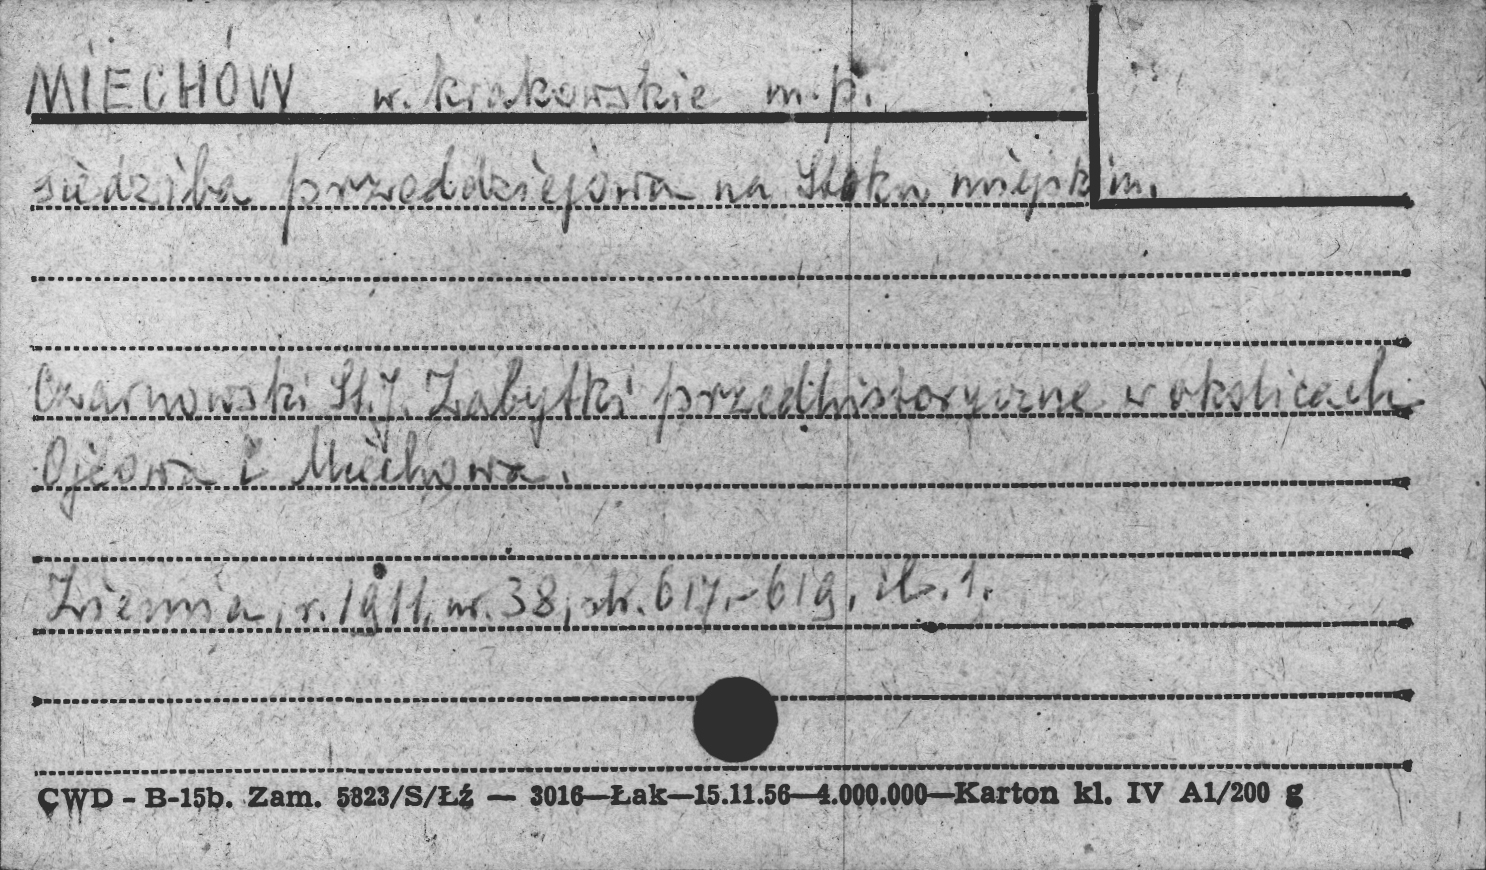 MIECHÓW w. krakowskie m. p.
siedziba przeddziejowa na Stoku miejskim.
Czarnowski St. J. Zabytki przedhistoryczne w okolicach
Ojcowa i Miechowa.
Ziemia, r. 1911, nr. 38, str. 617.-619, il. 1.
CWD - B-15b. Zam. 5823/S/Łź — 3016—Łak—15.11.56—4.000.000—Karton kl. IV A1/200 g